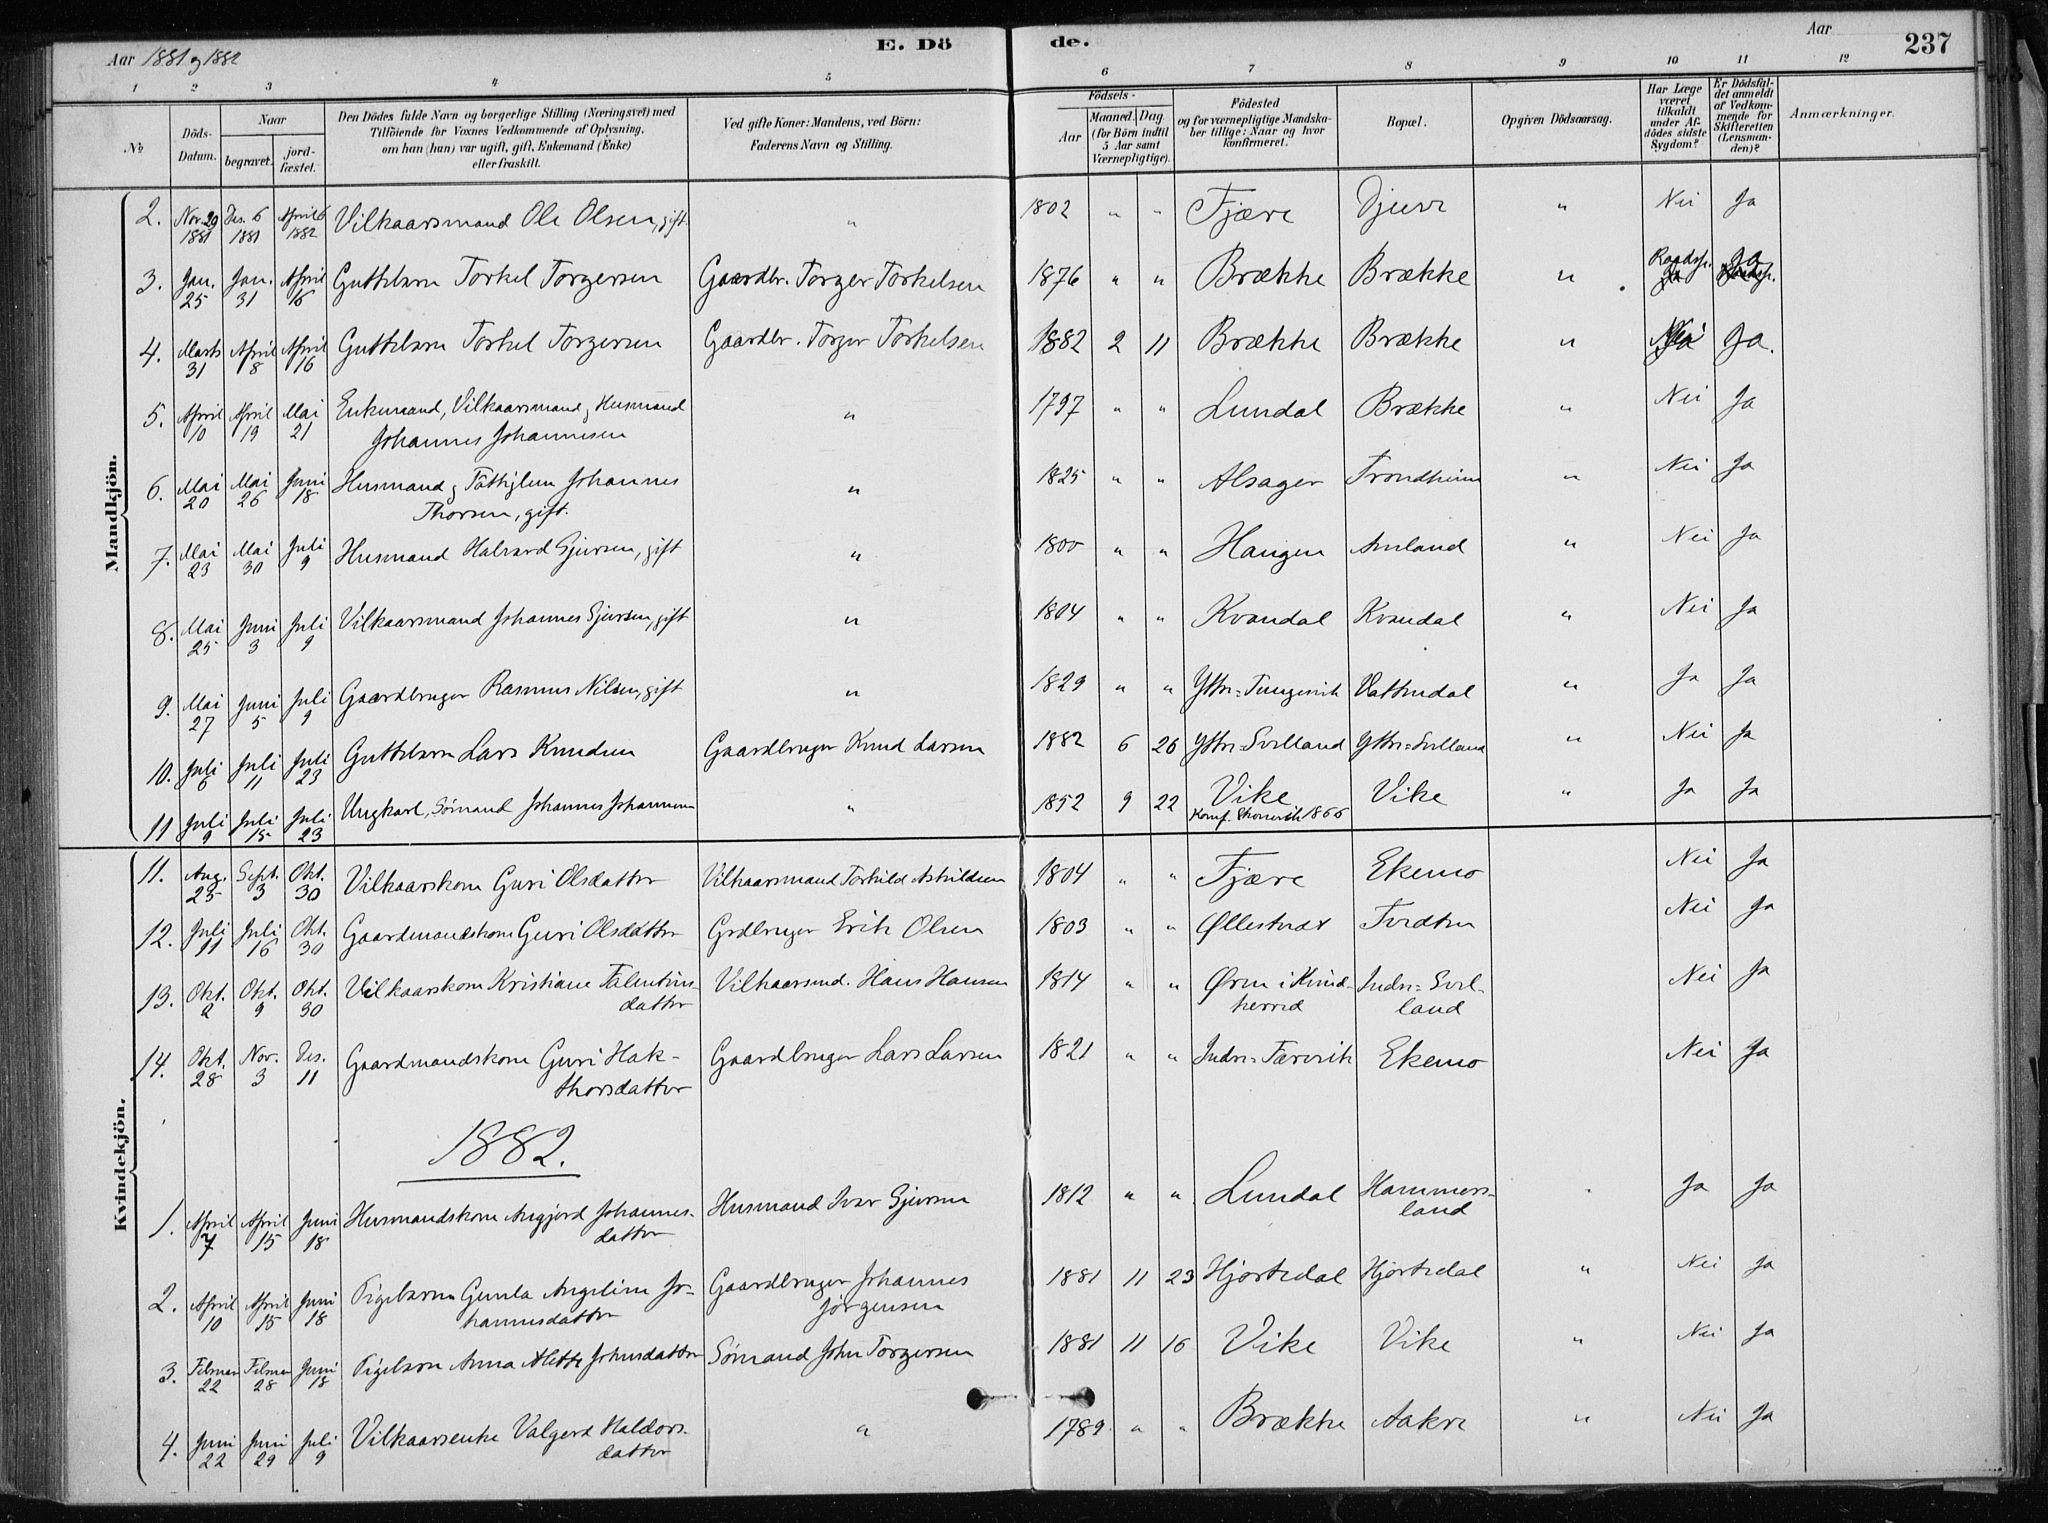 Aar 1881 og 1882
E. Dö
de.
Aar
237
1 2 3 4 5 6 7 8 9 10 11 12
№
Döds-Datum.
Naar
begravet.
jord-fæstet.
Den Dödes fulde Navn og borgerlige Stilling (Næringsvei) med
Tilföiende for Voxnes Vedkommende af Oplysning,
om han (hun) var ugift, gift, Enkemand (Enke)
eller fraskilt.
Ved gifte Koner: Mandens, ved Börn:
Faderens Navn og Stilling.
Födsels-
Aar
Maaned. Dag.
(for Börn indtil
5 Aar samt
Værnepligtige).
Födested
og for værnepligtige Mandska-
ber tillige: Naar og hvor
konfirmeret.
Bopæl.
Opgiven Dödsaarsag.
Har Læge
været
tilkaldt
under Af-
dödes sidste
Sygdom?
Er Dödsfal-
det anmeldt
af Vedkom-
mende for
Skifteretten
(Lensman-
den)?
Anmærkninger.
Mandkjön.
2. Nov. 29 1881 Des. 6 1881 April 16 1882 Vilkaarsmand Ole Olsen, gift. " 1802 " " Fjære Djuve " Nei Ja
3. Jan. 25 Jan. 31 April 16 Guttebarn Torkel Torgersen Gaardbr. Torger Torkelsen 1876 " " Brække Brække " Ja
4. Marts 31 April 8 April 16 Guttebarn Torkel Torgersen Gaardbr. Torger Torkelsen 1882 2 11 Brække Brække " Ja.
5. April 10 April 19 Mai 21 Enkemand, Vilkaarsmand, Husmand
Johannes Johannesen " 1797 " " Lundal Brække " Nei Ja
6. Mai 20 Mai 26 Juni 18 Husmand, Fattiglem Johannes
Thorsen, gift. " 1825 " " Alsager Trondheim " Nei Ja
7. Mai 23 Mai 30 Juli 9 Husmand Halvard Sjursen, gift " 1800 " " Haugen Amland " Nei Ja
8. Mai 25 Juni 3 Juli 9 Vilkaarsmand Johannes Sjursen, gift " 1804 " " Kvandal Kvandal " Nei Ja
9. Mai 27 Juni 5 Juli 9 Gaardbruger Rasmus Nilsen, gift " 1829 " " Ytre=Tungesvik Vattendal " Ja Ja
10. Juli 6 Juli 11 Juli 23 Guttebarn Lars Knudsen Gaardbruger Knud Larsen 1882 6 26 Ytre=Svelland Ytre=Svelland " Nei Ja
11 Juli 9 Juli 15 Juli 23 Ungkarl, Sømand Johannes Johannesen " 1852 9 22 Vike Vike " Ja Ja
Konf. Skonevik 1866
Kvindekjön.
11. Aug. 25 Sept. 3 Okt. 30 Vilkaarskone Guri Olsdatter Vilkaarsmand Torkild Askildsen 1804 " " Fjære Ekemo Nei Ja
12. Juli 11 Juli 16 Okt. 30 Gaardmandskone Guri Olsdatter Grdbruger Erik Olsen 1803 " " Øllestvedt Tvedten Nei Ja
13. Okt. 2 Okt. 9 Okt. 30 Vilkaarskone Kristiane Falentins-
datter Vilkaarsmd. Hans Hansen 1814 " " Øren i Kvind-
herred Indre=Svel-
land Nei Ja
14. Okt. 28 Nov. 3 Des. 11 Gaardmandskone Guri Hak-
thorsdatter Gaardbruger Lars Larsen 1821 " " Indre=Færevik Ekemo Nei Ja
1882.
1. April 7 April 15 Juni 18 Husmandskone Angjerd Johannes-
datter Husmand Ivar Sjursen 1812 " " Lundal Hammers-
land Ja Ja
2. April 10 April 15 Juni 18 Pigebarn Gunla Angeline Jo-
hannesdatter Gaardbruger Johannes
Jørgensen 1881 11 23 Hjortedal Hjortedal " Nei Ja
3. Februar 22 Februar 28 Juni 18 Pigebarn Anna Alette Johnsdatter Sømand John Torgersen 1881 11 16 Vike Vike " Nei Ja
4. Juni 22 Juni 29 Juli 9 Vilkaarsenke Valgerd Haldors-
datter " 1789 " " Brække Aakre " Nei Ja